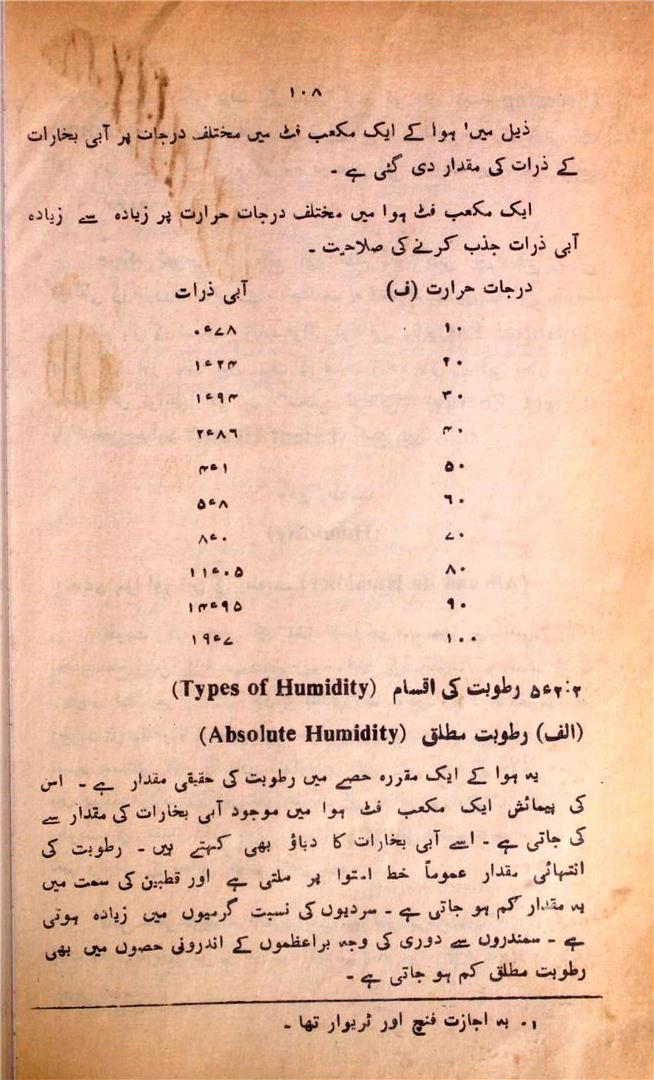 ۱۰۸
ذیل میں' ہوا کے ایک مکعب فٹ میں مختلف درجات پر آبی بخارات
کے ذرات کی مقدار دی گئی ہے ۔
ایک مکعب فٹ ہوا میں مختلف درجات حرارت پر زیادہ سے زیادہ
آبی ذرات جذب کرنے کی صلاحیت ۔
درجات حرارت (ف) آبی ذرات
۱۰ ۰ء۷۸
۲۰ ۱ء۲۴
۳۰ ۱ء۹۴
۴۰ ۲ء۸۶
۵۰ ۴ء۱
۶۰ ۵ء۸
۷۰ ۸ء۰
۸۰ ۱۱ء۰۵
۹۰ ۱۴ء۹۵
۱۰۰ ۱۹ء۷
۵ء۲:۲ رطوبت کی اقسام (Types of Humidity)
(الف) رطوبت مطلق (Absolute Humidity)
یہ ہوا کے ایک مقررہ حصے میں رطوبت کی حقیقی مقدار ہے ۔ اس
کی پیمائش ایک مکعب فٹ ہوا میں موجود آبی بخارات کی مقدار سے
کی جاتی ہے ۔ اسے آبی بخارات کا دباؤ بھی کہتے ہیں ۔ رطوبت کی
انتہائی مقدار عموماً خط استوا پر ملتی ہے اور قطبین کی سمت میں
یہ مقدار کم ہو جاتی ہے ۔ سردیوں کی نسبت گرمیوں میں زیادہ ہوتی
ہے ۔ سمندروں سے دوری کی وجہ براعظموں کے اندرونی حصوں میں بھی
رطوبت مطلق کم ہو جاتی ہے ۔
۱. بہ اجازت فنچ اور ٹریوار تھا ۔